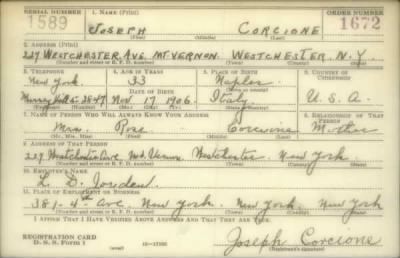 SERIAL NUMBER 1. NAME (Print) ORDER NUMBER
1589 JOSEPH CORCIONE 1672
(First) (Middle) (Last)
2. ADDRESS (Print)
227 WESTCHESTER AVE. MT VERNON WESTCHESTER N.Y.
(Number and street or R. F. D. number) (Town) (County) (State)
3. TELEPHONE 4. AGE IN YEARS 5. PLACE OF BIRTH 6. COUNTRY OF CITIZENSHIP
New York 33 Naples
DATE OF BIRTH
Murray Hill 5-2847 Nov 17 1906 Italy U.S.A.
(Exchange) (Number) (Mo.) (Day) (Yr.) (State or country)
7. NAME OF PERSON WHO WILL ALWAYS KNOW YOUR ADDRESS 8. RELATIONSHIP OF THAT PERSON
Mrs. Rose Corcione Mother
(Mr., Mrs., Miss) (First) (Middle) (Last)
9. ADDRESS OF THAT PERSON
227 Westchester Ave Mt. Vernon Westchester New York
(Number and street or R. F. D. number) (Town) (County) (State)
10. EMPLOYER'S NAME
L. D.
11. PLACE OF EMPLOYMENT OR BUSINESS
381-4th Ave. New York. New York. New York
(Number and street or R. F. D. number) (Town) (County) (State)
I AFFIRM THAT I HAVE VERIFIED ABOVE ANSWERS AND THAT THEY ARE TRUE.
REGISTRATION CARD
D. S. S. Form 1 (over) Joseph Corcione
(Registrant's signature)